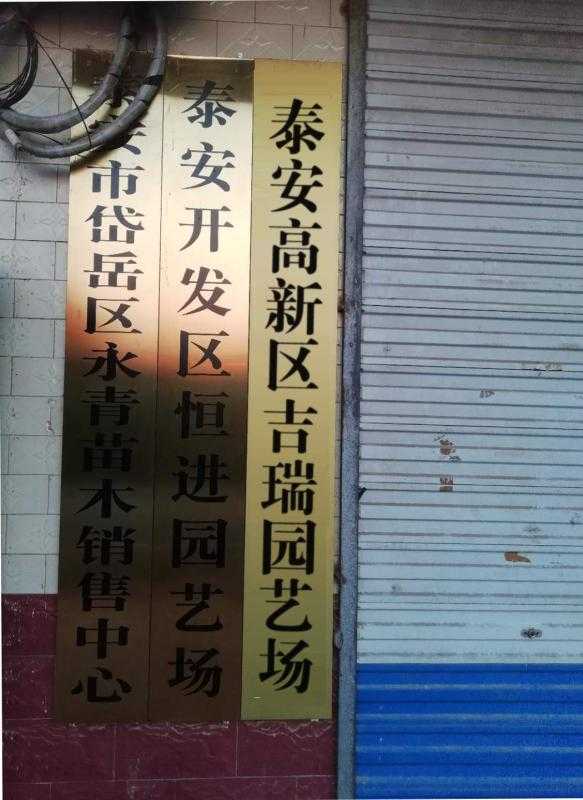 泰安高新区吉瑞园艺场
泰安开发区恒进园艺场
泰安市岱岳区永青苗木销售中心